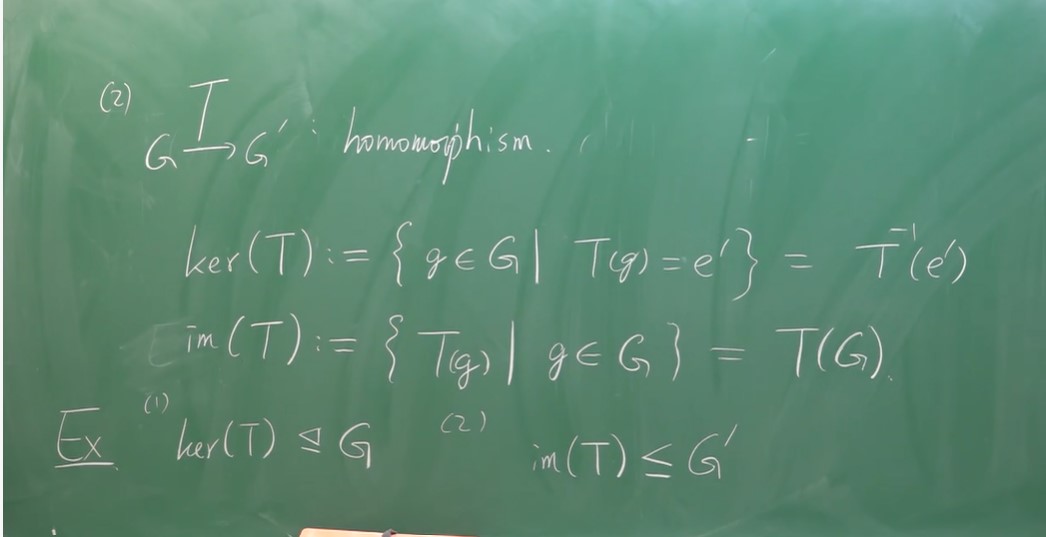 (2) G —T→ G' : homomorphism.
ker(T) := { g ∈ G | T(g) = e' } = T⁻¹(e')
im(T) := { T(g) | g ∈ G } = T(G).
Ex. (1) ker(T) ⊴ G (2) im(T) ≤ G'